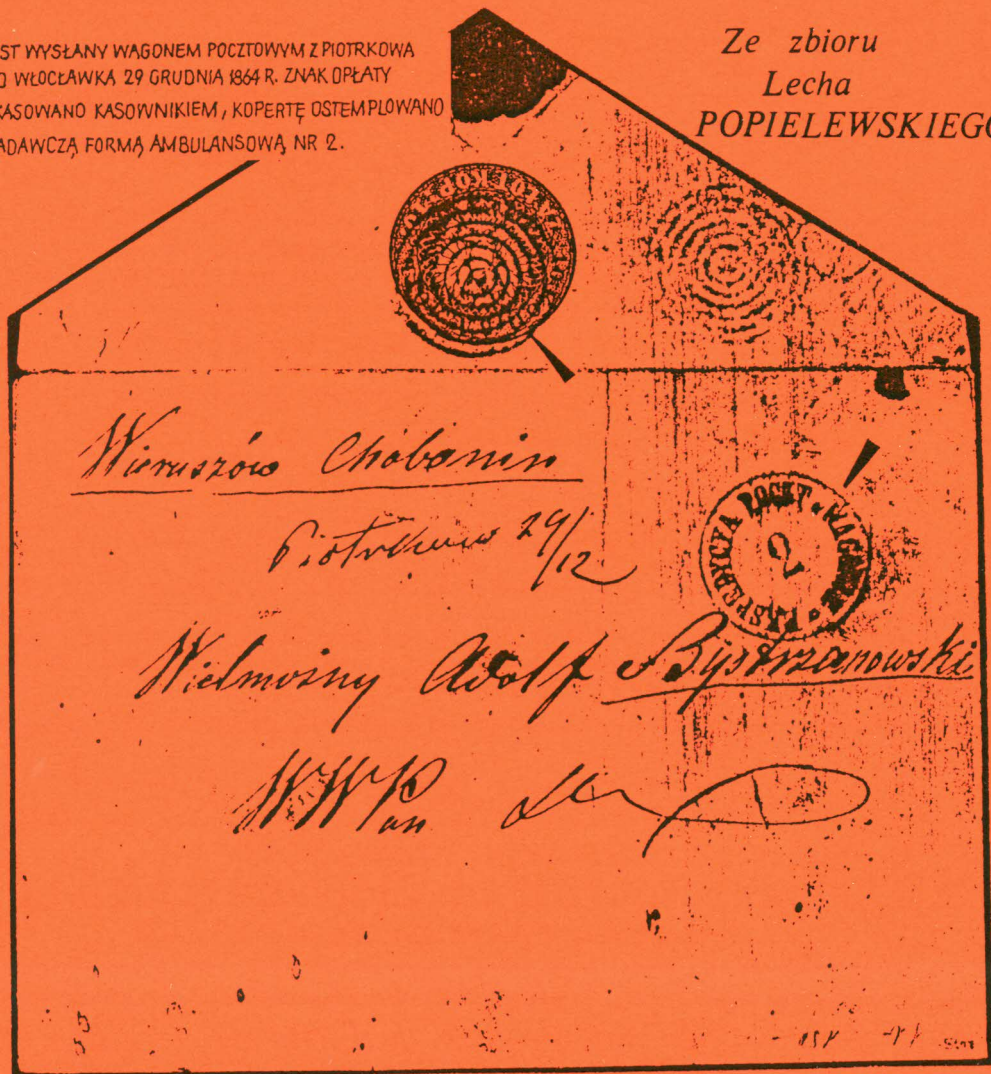 ST WYSŁANY WAGONEM POCZTOWYM Z PIOTRKOWA
O WŁOCŁAWKA 29 GRUDNIA 1864 R. ZNAK OPŁATY
KASOWANO KASOWNIKIEM, KOPERTĘ OSTEMPLOWANO
ADAWCZĄ FORMĄ AMBULANSOWĄ NR 2.
Ze zbioru
Lecha
POPIELEWSKIEGO
ZA ŁÓT KOP
2
Wieruszów Chobanin
Piotrków 29/12
EXSPEDYCJA POCZT. WAGONIE
2
Wielmożny Adolf Bystrzanowski
WWPan